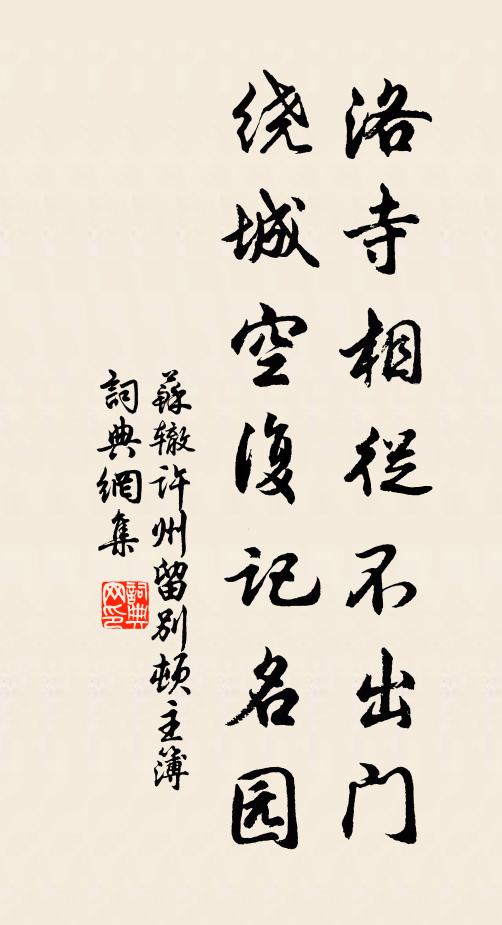 洛寺相從不出门
绕城空復记名园
蘇辙许州留别顿主簿
詞典網集
詞典网印